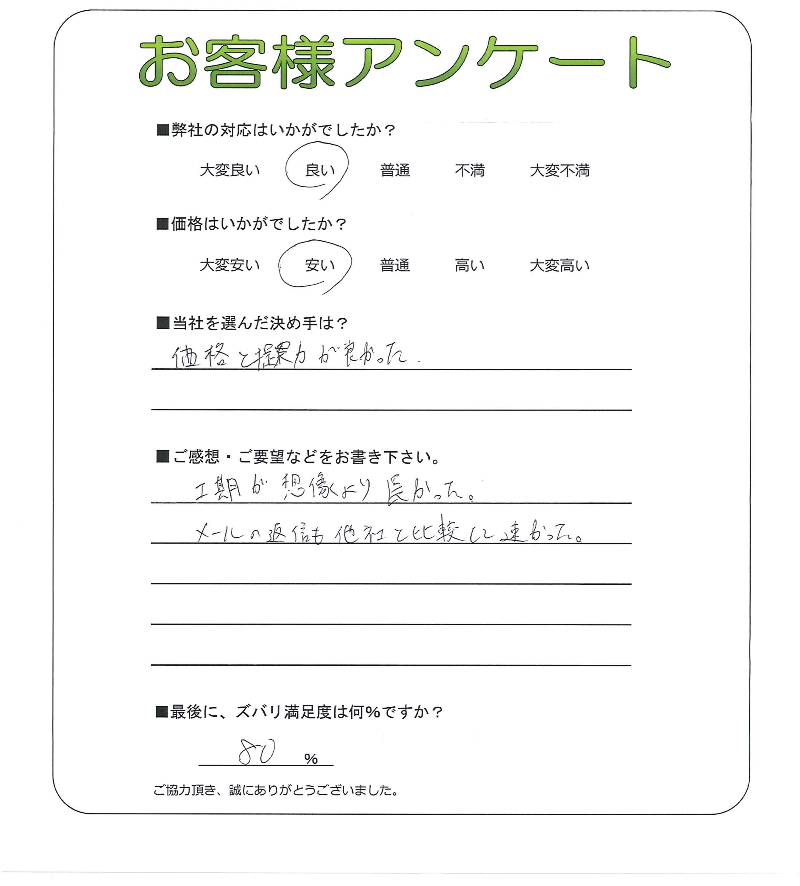 お客様アンケート
■弊社の対応はいかがでしたか？
大変良い 良い 普通 不満 大変不満
■価格はいかがでしたか？
大変安い 安い 普通 高い 大変高い
■当社を選んだ決め手は？
価格と提案力が良かった.
■ご感想・ご要望などをお書き下さい。
工期が想像より長かった。
メールの返信も他社と比較して速かった。
■最後に、ズバリ満足度は何%ですか？
80 %
ご協力頂き、誠にありがとうございました。